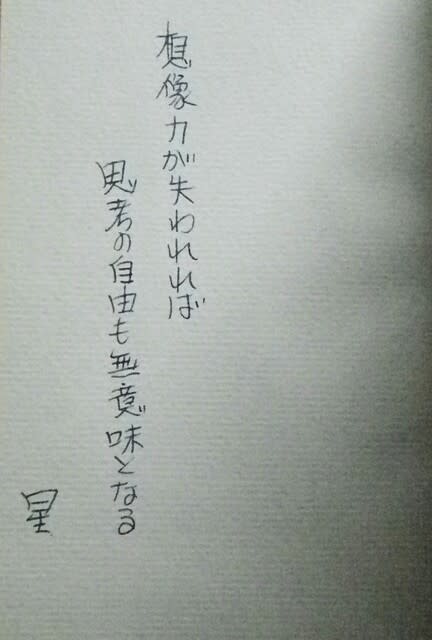 想像力が失われれば
思考の自由も無意味となる
星